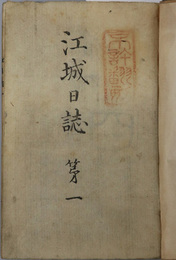 江城日誌 第一